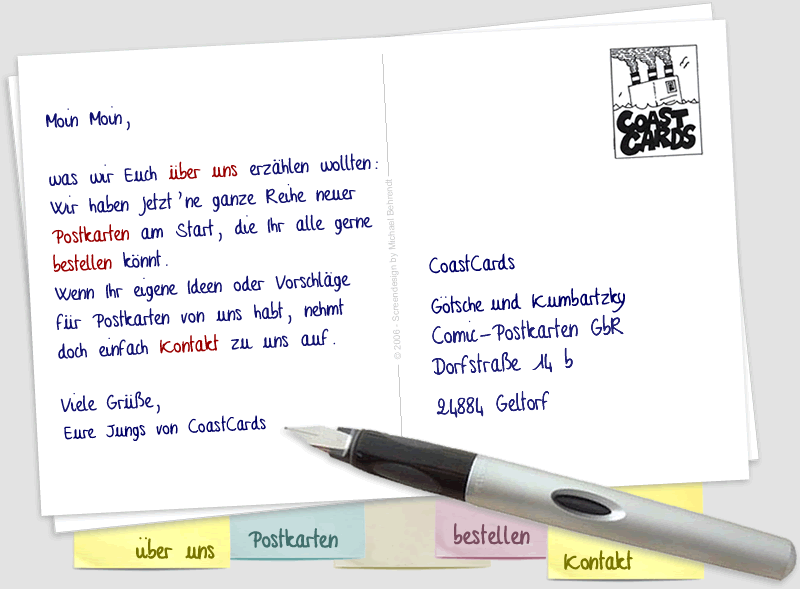 Moin Moin,
was wir Euch über uns erzählen wollten:
Wir haben jetzt 'ne ganze Reihe neuer
Postkarten am Start, die Ihr alle gerne
bestellen könnt.
Wenn Ihr eigene Ideen oder Vorschläge
für Postkarten von uns habt, nehmt
doch einfach Kontakt zu uns auf.
Viele Grüße,
Eure Jungs von CoastCards
© 2006 - Screendesign by Michael Behrendt
COAST
CARDS
CoastCards
Götsche und Kumbartzky
Comic-Postkarten GbR
Dorfstraße 14 b
24884 Geltorf
über uns
Postkarten
bestellen
Kontakt